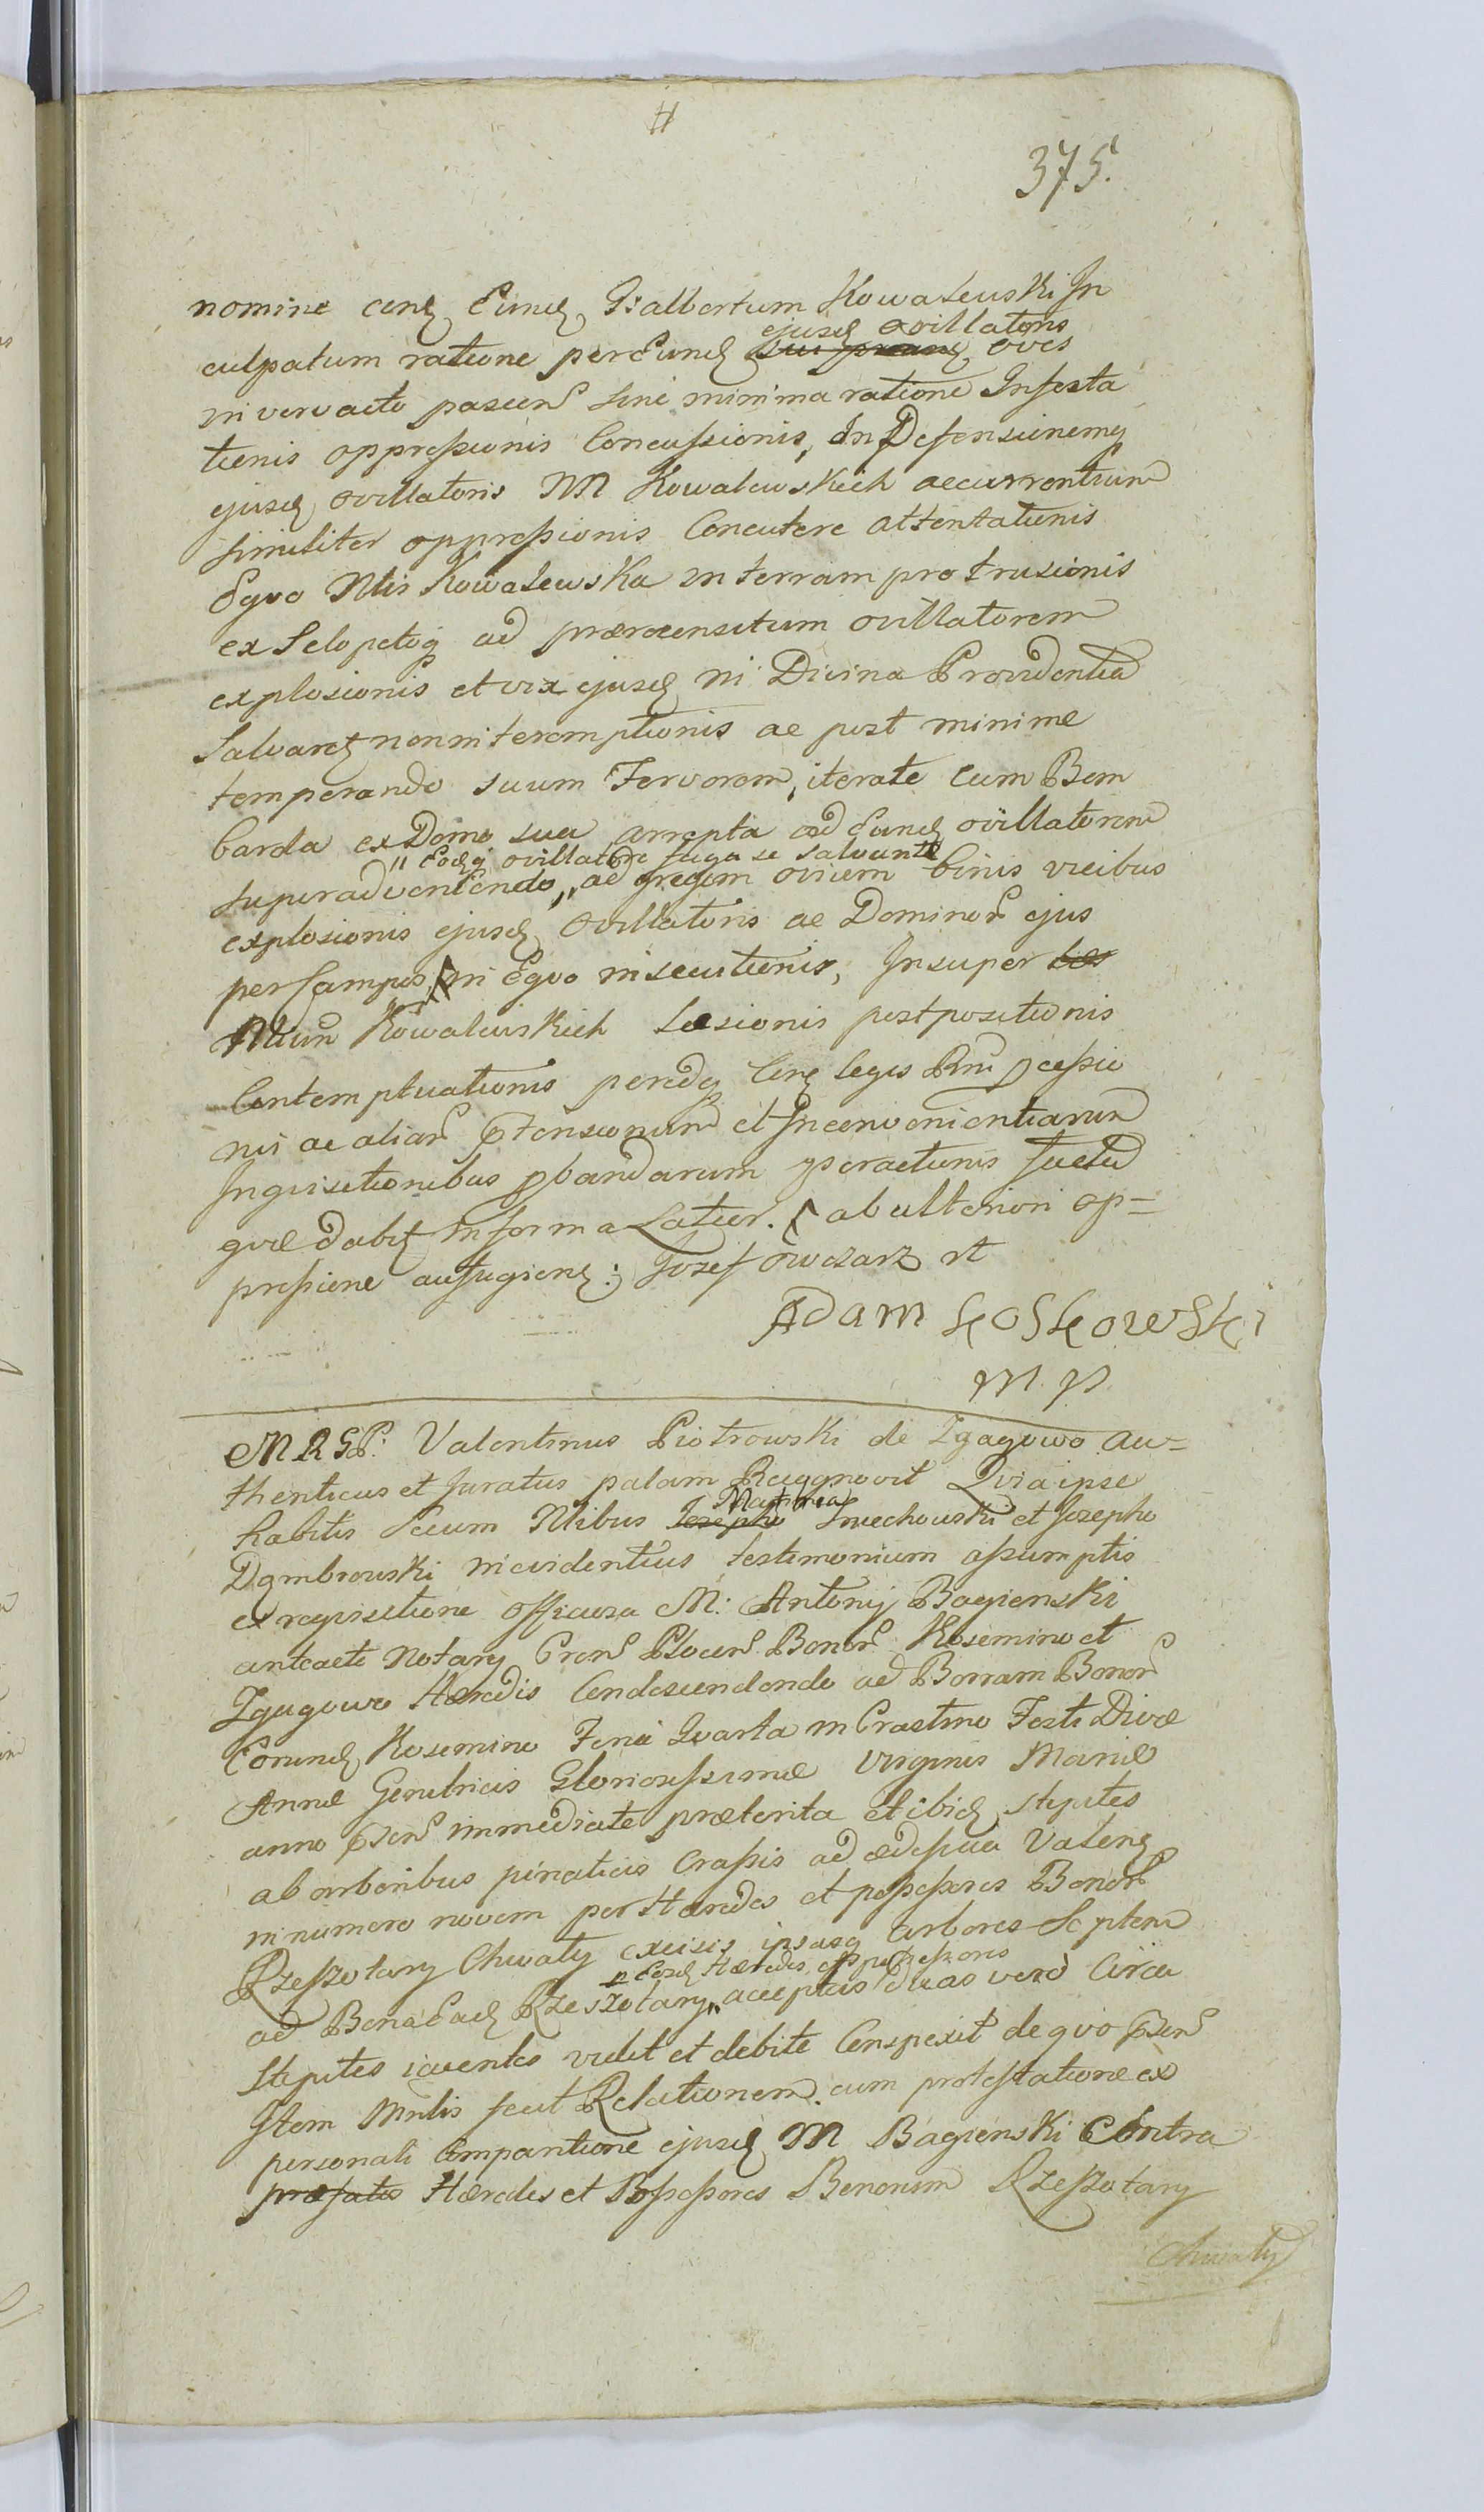 375.
nomine conq Eundq Adalbertum Kowalewski In
culpatum ratione per Eundq ejusdq ovillatoris oves
in vervacto pascent sine minima ratione Infesta
tionis oppressionis Concussionis, In Defensionemq
ejusdq ovillatoris M Kowalewskich accurrentium
similiter oppressionis Concutere attentationis
Equo Mlis Kowalewska in terram protrusionis
ex Sclopetoq ad praerecensitum ovillatorem
explosionis et vix ejusdq ni Divina Providentia
Salvaret non interemptionis ac post minime
temperando suum Fervorem, iterate cum Bom
barda ex Domo sua arrepta ad Eundq ovillatorem
" Eodq ovillatore fuga se salvante
superadveniendo,, ad gregem ovium binis vicibus
explosionis ejusdq Ovillatoris ac Dominor ejus
per Campos in Equo insecutionis, Insuper
Mlium Kowalewskich Laesionis postpositionis
Contemptuationis peredq Cirq legis Rni pcessio
nis ac aliar ptensionum et Inconvenientiarum
Inquisitionibus pbandarum peractionis factu
quae dabit informa Latior. ab ulteriori op=
pressione aufugienq: Jozef owczarz rt
Adam Koskowski
m. p.
M R S P: Valentinus Piotrowski de Zgagowo au=
thenticus et Juratus palam Recognovit Quia ipse
habitis Secum Nlibus Josepho Mathia Smechowski et Josepho
Dąmbrowski in evidentius testimonium assumptis
ex requisitione officiosa M: Antonij Bagienski
anteacti Notarij Cren Plocen Bonor Kosemino et
Zgagowo Haeredis Condescendendo ad Borram Bonor
Eorundq Kosemino Feria Quarta in Crastino Festi Divae
Annae Genitricis Gloriosissimae Virginis Mariae
anno psen immediate praeterita et ibidq stipites
ab arboribus pinaticis Crassis ad aedificia Valenq
in numero novem per Haeredes et possessores Bonor
Rzeszotary Chwały excisis ipsasq arbores Septem
p Eosdq Haeredes et possessores
ad Bona Eadq Rzeszotary,, acceptas duas vero Circa
stipites iacentes vidit et debite Conspexit de quo psen
Item Mnlis fecit Relationem. cum protestatione ex
personali Comparitione ejusdq M Bagienski Contra
praefatos Haeredes et Possessores Bonorum Rzeszotary
Chwały